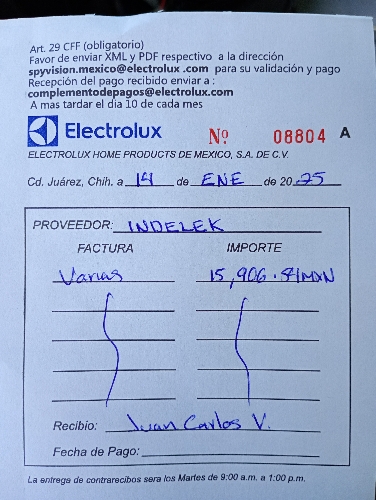 Art. 29 CFF (obligatorio)
Favor de enviar XML y PDF respectivo a la dirección
spyvision.mexico@electrolux .com para su validación y pago
Recepción del pago recibido enviar a :
complementodepagos@electrolux.com
A mas tardar el dia 10 de cada mes
Electrolux Nº 08804 A
ELECTROLUX HOME PRODUCTS DE MEXICO, S.A. DE C.V.
Cd. Juárez, Chih. a 14 de ENE de 20 25
PROVEEDOR: INDELEK
FACTURA IMPORTE
Varias 15,906.51MXN
Recibio: Juan Carlos V.
Fecha de Pago:
La entrega de contrarecibos sera los Martes de 9:00 a.m. a 1:00 p.m.